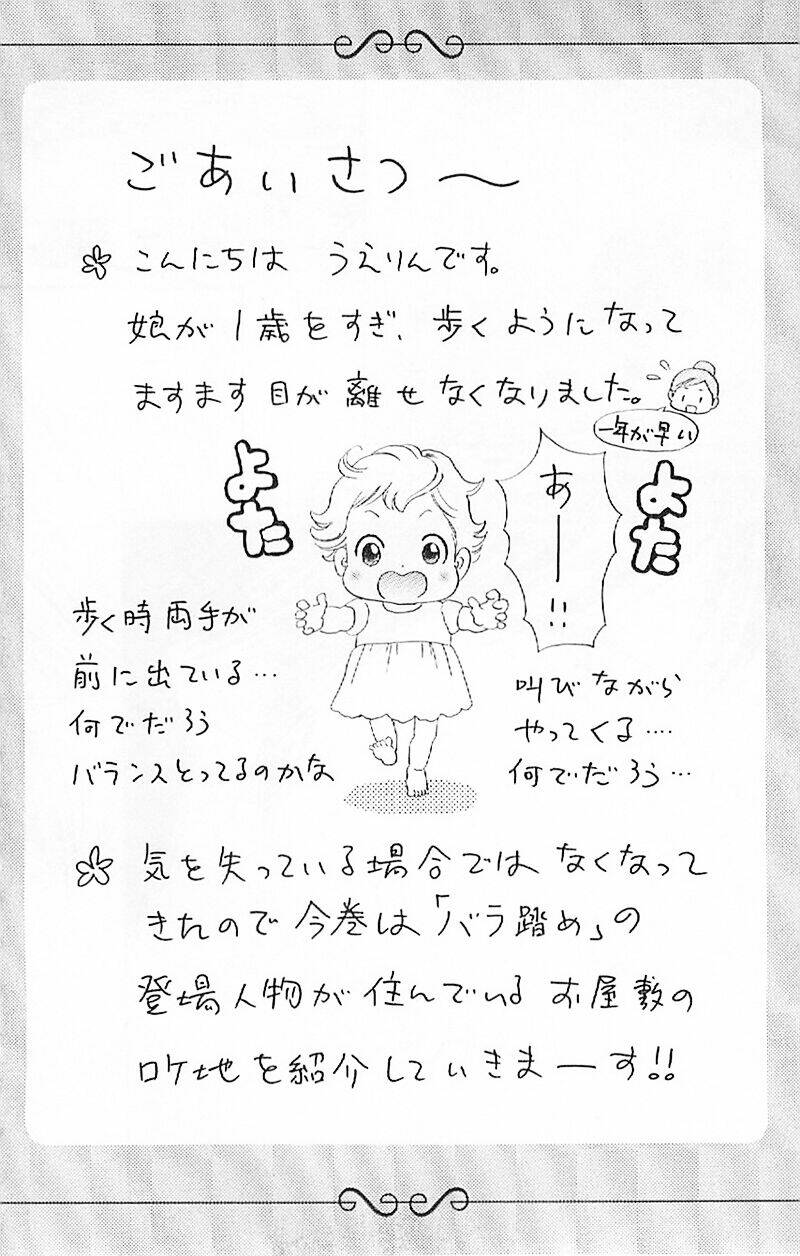 ごあいさつ〜
こんにちは うえりんです。
娘が1歳をすぎ、歩くようになって
ますます目が離せなくなりました。
一年が早い
よた
あー!!
よた
歩く時両手が
前に出ている…
何でだろう
バランスとってるのかな
叫びながら
やってくる…
何でだろう…
気を失っている場合ではなくなって
きたので今巻は「バラ踏め」の
登場人物が住んでいるお屋敷の
ロケ地を紹介していきまーす!!